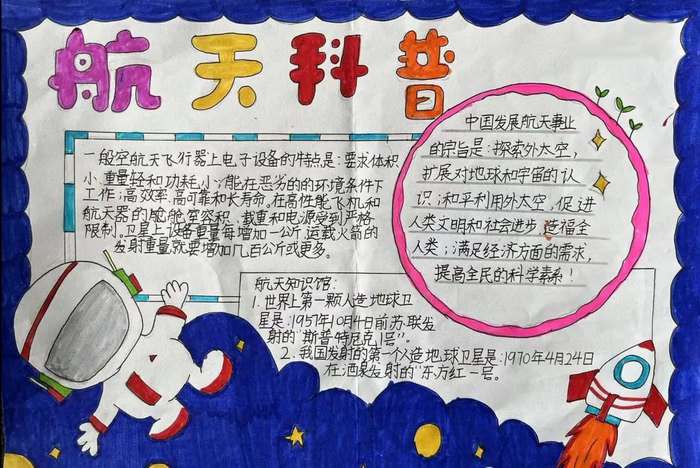 航天科普
一般空航天飞行器上电子设备的特点是:要求体积
小.重量轻和功耗小;能在恶劣的的环境条件下
工作;高效率.高可靠和长寿命.在高性能飞机和
航天器的舱室容积、载重和电源受到严格
限制。卫星上设备重量每增加一公斤,运载火箭的
发射重量就要增加几百公斤或更多。
中国发展航天事业
的宗旨是:探索外太空,
扩展对地球和宇宙的认
识;和平利用外太空,促进
人类文明和社会进步,造福全
人类;满足经济方面的需求,
提高全民的科学素系!
航天知识馆:
1.世界上第一颗人造地球卫
星是:1957年10月4日前苏联发
射的“斯普特尼克1号”。
2.我国发射的第一个人造地球卫星是:1970年4月24日
在酒泉发射的“东方红一号。